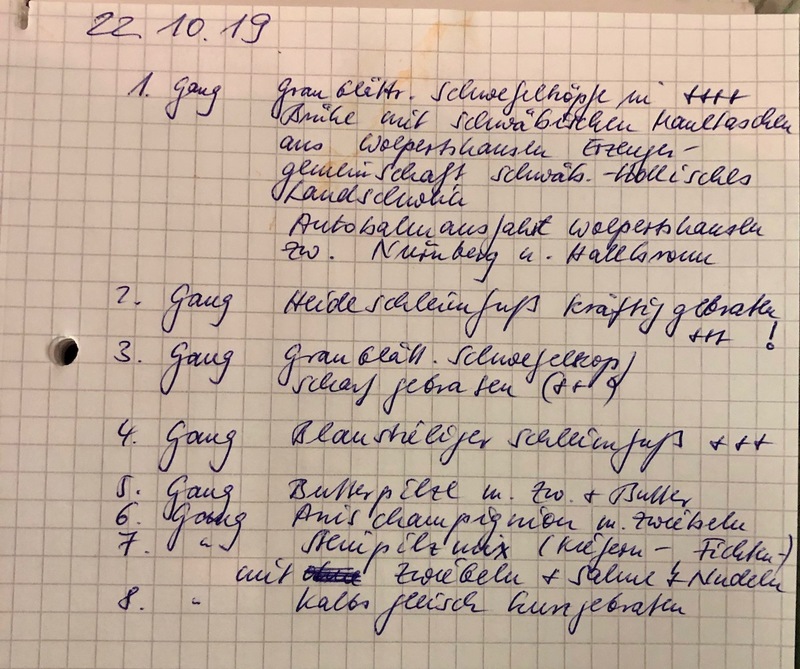 22.10.19
1. Gang Graublättr. Schwefelköpfe in ++++
Brühe mit schwäbischen Maultaschen
aus Wolpertshausen Erzeuger-
gemeinschaft Schwäb.-Hällisches
Landschwein
Autobahnausfahrt Wolpertshausen
zw. Nürnberg u. Heilbronn
2. Gang Heideschleimfuß kräftig gebraten
+++ !
3. Gang Graublätt. Schwefelkopf
scharf gebraten (++
4. Gang Blaustieliger Schleimfuß +++
5. Gang Butterpilze m. Zw. + Butter
6. Gang Anischampignion m. Zwiebeln
7. " Steinpilzmix (Kiefern- Fichten-)
mit Zwiebeln + Sahne + Nudeln
8. " Kalbsfleisch kurzgebraten